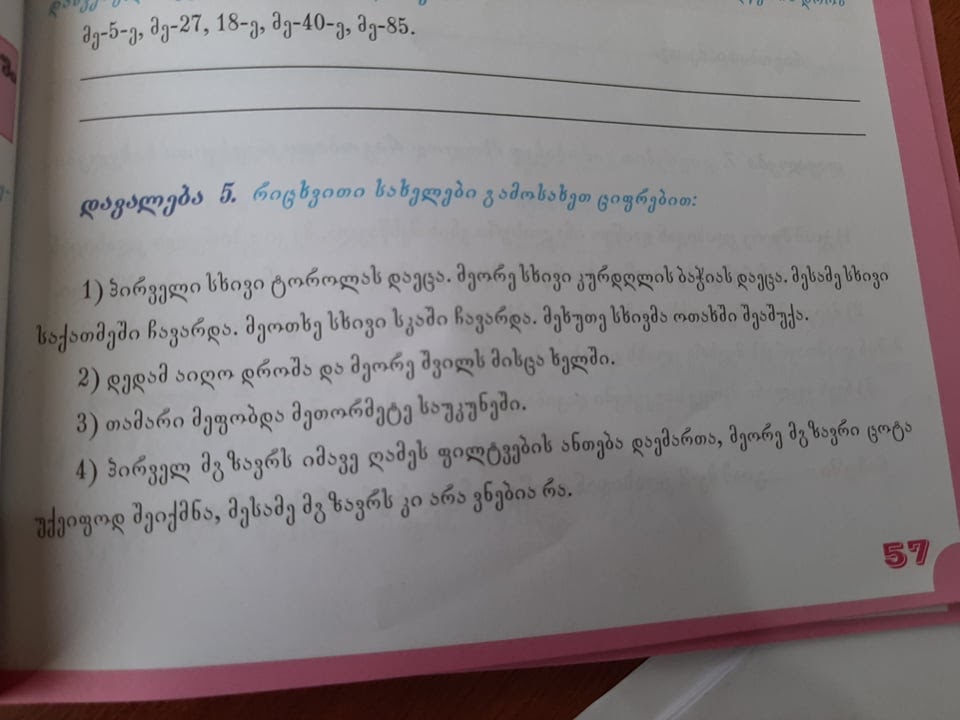 მე-5-ე, მე-27, 18-ე, მე-40-ე, მე-85.
დავალება 5. რიცხვითი სახელები გამოსახეთ ციფრებით:
1) პირველი სხივი ტოროლას დაეცა. მეორე სხივი კურდღლის ბაჭიას დაეცა. მესამე სხივი
საქათმეში ჩავარდა. მეოთხე სხივი სკაში ჩავარდა. მეხუთე სხივმა ოთახში შეაშუქა.
2) დედამ აიღო დროშა და მეორე შვილს მისცა ხელში.
3) თამარი მეფობდა მეთორმეტე საუკუნეში.
4) პირველ მგზავრს იმავე ღამეს ფილტვების ანთება დაემართა, მეორე მგზავრი ცოტა
უქეიფოდ შეიქმნა, მესამე მგზავრს კი არა ვნებია რა.
57